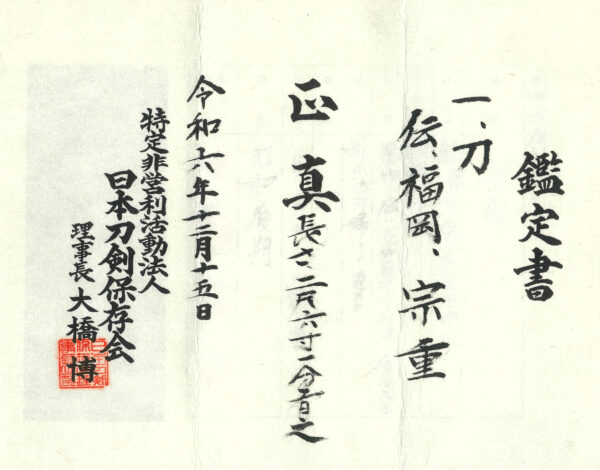 鑑定書
一、刀
伝、福岡、宗重
正真
長さ、二尺六寸一分有之
令和六年十二月十五日
特定非営利活動法人
日本刀剣保存会
理事長 大橋博